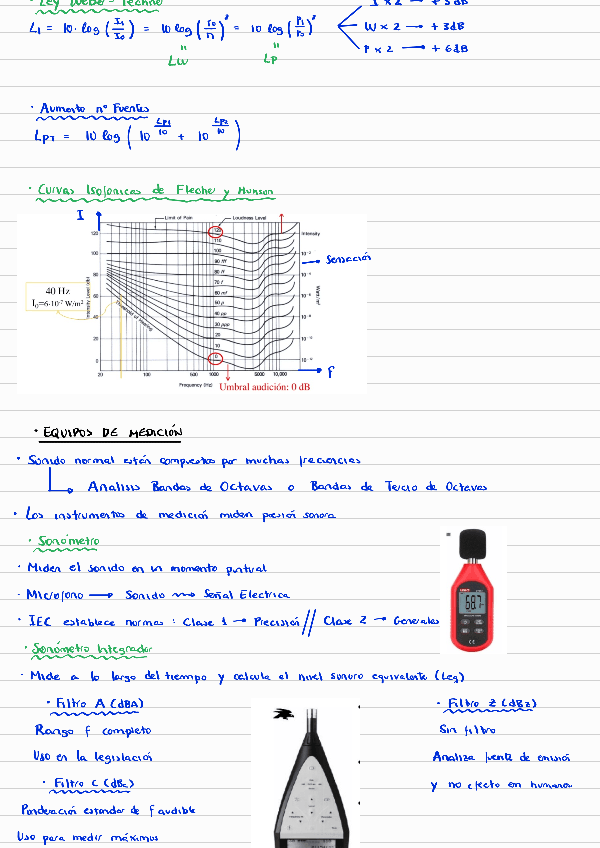 · Ley Weber - Fechner
I x 2 → + 3 dB
L₁ = 10 · log (I₁/I₀) = 10 log (r₀/r₁)² = 10 log (P₁/P₀)²
W x 2 → + 3dB
P x 2 → + 6dB
LW
LP
· Aumento nº Fuentes
LPT = 10 log ( 10^(LP1/10) + 10^(LP2/10) )
· Curvas Isofonicas de Flecher y Munson
I
Limit of Pain
Loudness Level
120
120
Intensity
110
100
100
10⁻²
Sensación
90 fff
80
80 ff
10⁻⁴
70 f
40 Hz
I₀=6·10⁻⁷ W/m²
60
60 mf
10⁻⁶
50 p
Intensity Level (dB)
Watt/m²
40
40 pp
10⁻⁸
Threshold of Hearing
30 ppp
20
20
10⁻¹⁰
10
0
0
10⁻¹²
f
20
100
500
1000
5000
10,000
Frequency (Hz)
Umbral audición: 0 dB
· EQUIPOS DE MEDICIÓN
· Sonido normal están compuestos por muchas frecuencias
Analisis Bandas de Octavas o Bandas de Tercio de Octavas
· Los instrumentos de medición miden presión sonora
· Sonómetro
· Miden el sonido en un momento puntual
· Microfono → Sonido → Señal Electrica
· IEC establece normas : Clase 1 → Precisión // Clase 2 → Generales
68.7
· Sonómetro Integrador
· Mide a lo largo del tiempo y calcula el nivel sonoro equivalente (Leq)
· Filtro A (dBA)
· Filtro Z (dBz)
Rango f completo
Sin filtro
Uso en la legislación
Analiza fuente de emisión
· Filtro C (dBc)
y no efecto en humanos
Ponderación estandar de f audible
Uso para medir máximos